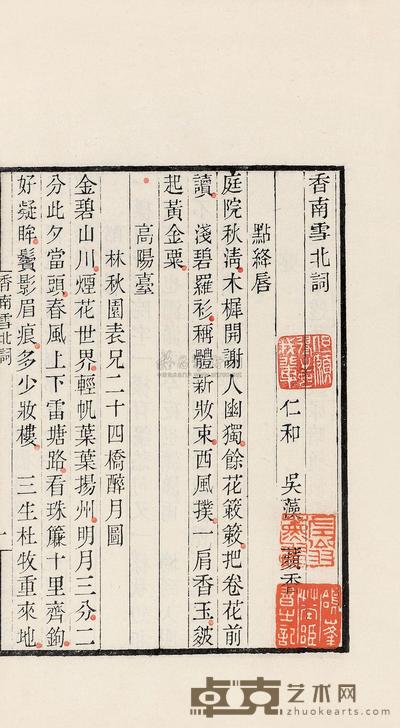 香南雪北詞
仁和 吳藻 蘋香
點絳唇
庭院秋清木樨開謝人幽獨餘花簌簌把卷花前
讀 淺碧羅衫稱體新妝束西風撲一肩香玉皴
起黃金粟
高陽臺
林秋園表兄二十四橋醉月圖
金碧山川煙花世界輕帆葉葉揚州明月三分二
分此夕當頭春風上下雷塘路看珠簾十里齊鉤
好凝眸鬢影眉痕多少妝樓 三生杜牧重來地
香南雪北詞
一
卓克艺术网
www.zhuokearts.com